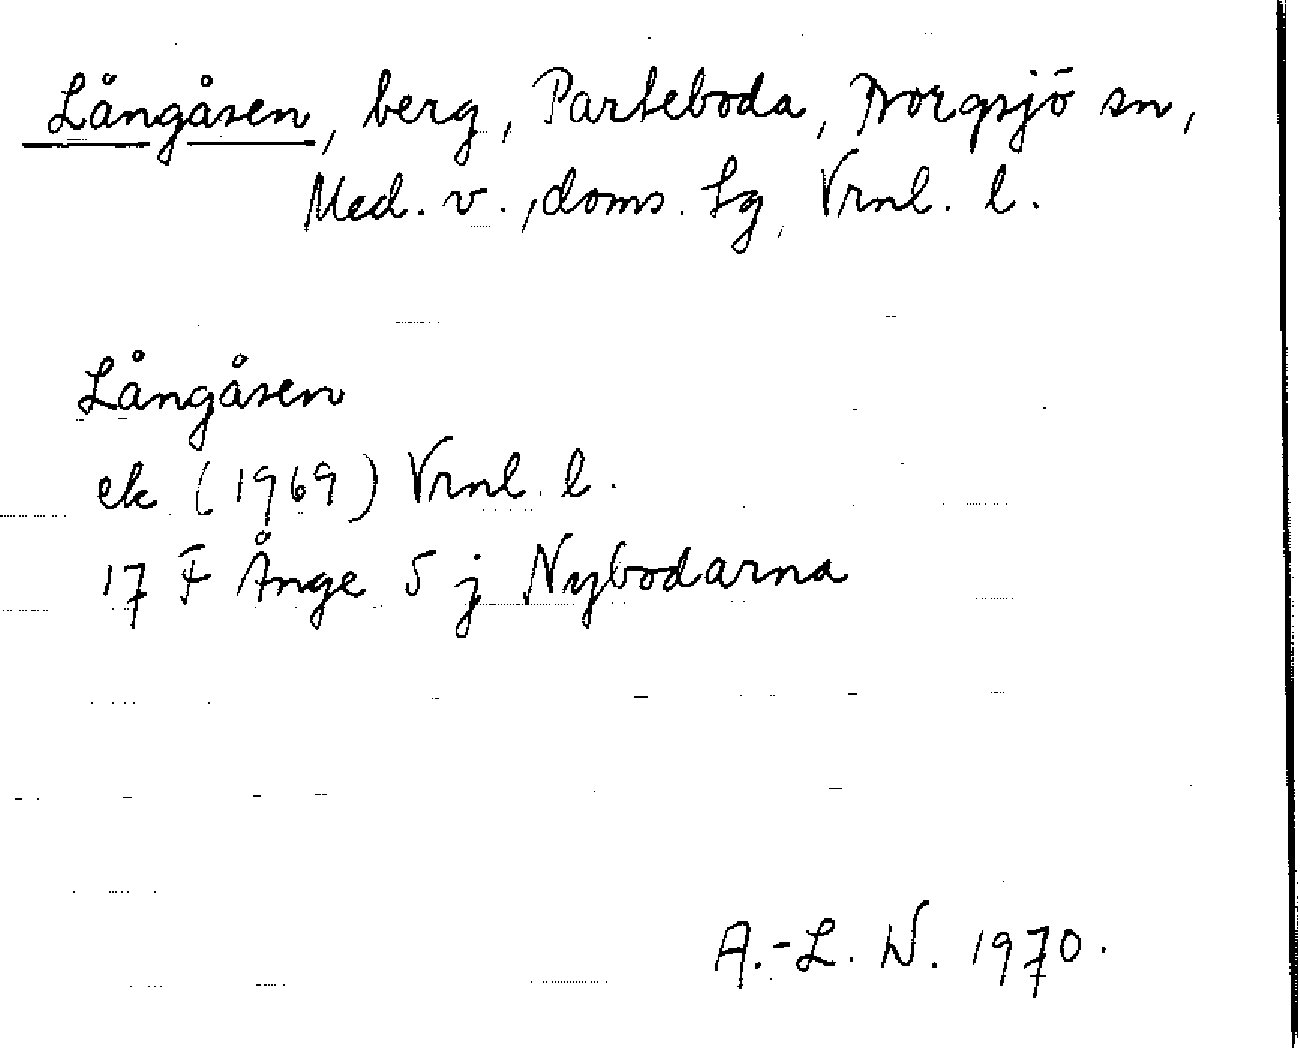 Långåsen, berg, Parteboda, Borgsjö sn,
Med. v., doms. Lg, Vrnl. l.
Långåsen
ek (1969) Vrnl. l.
17 F Ånge 5 j Nybodarna
A.-L. N. 1970.